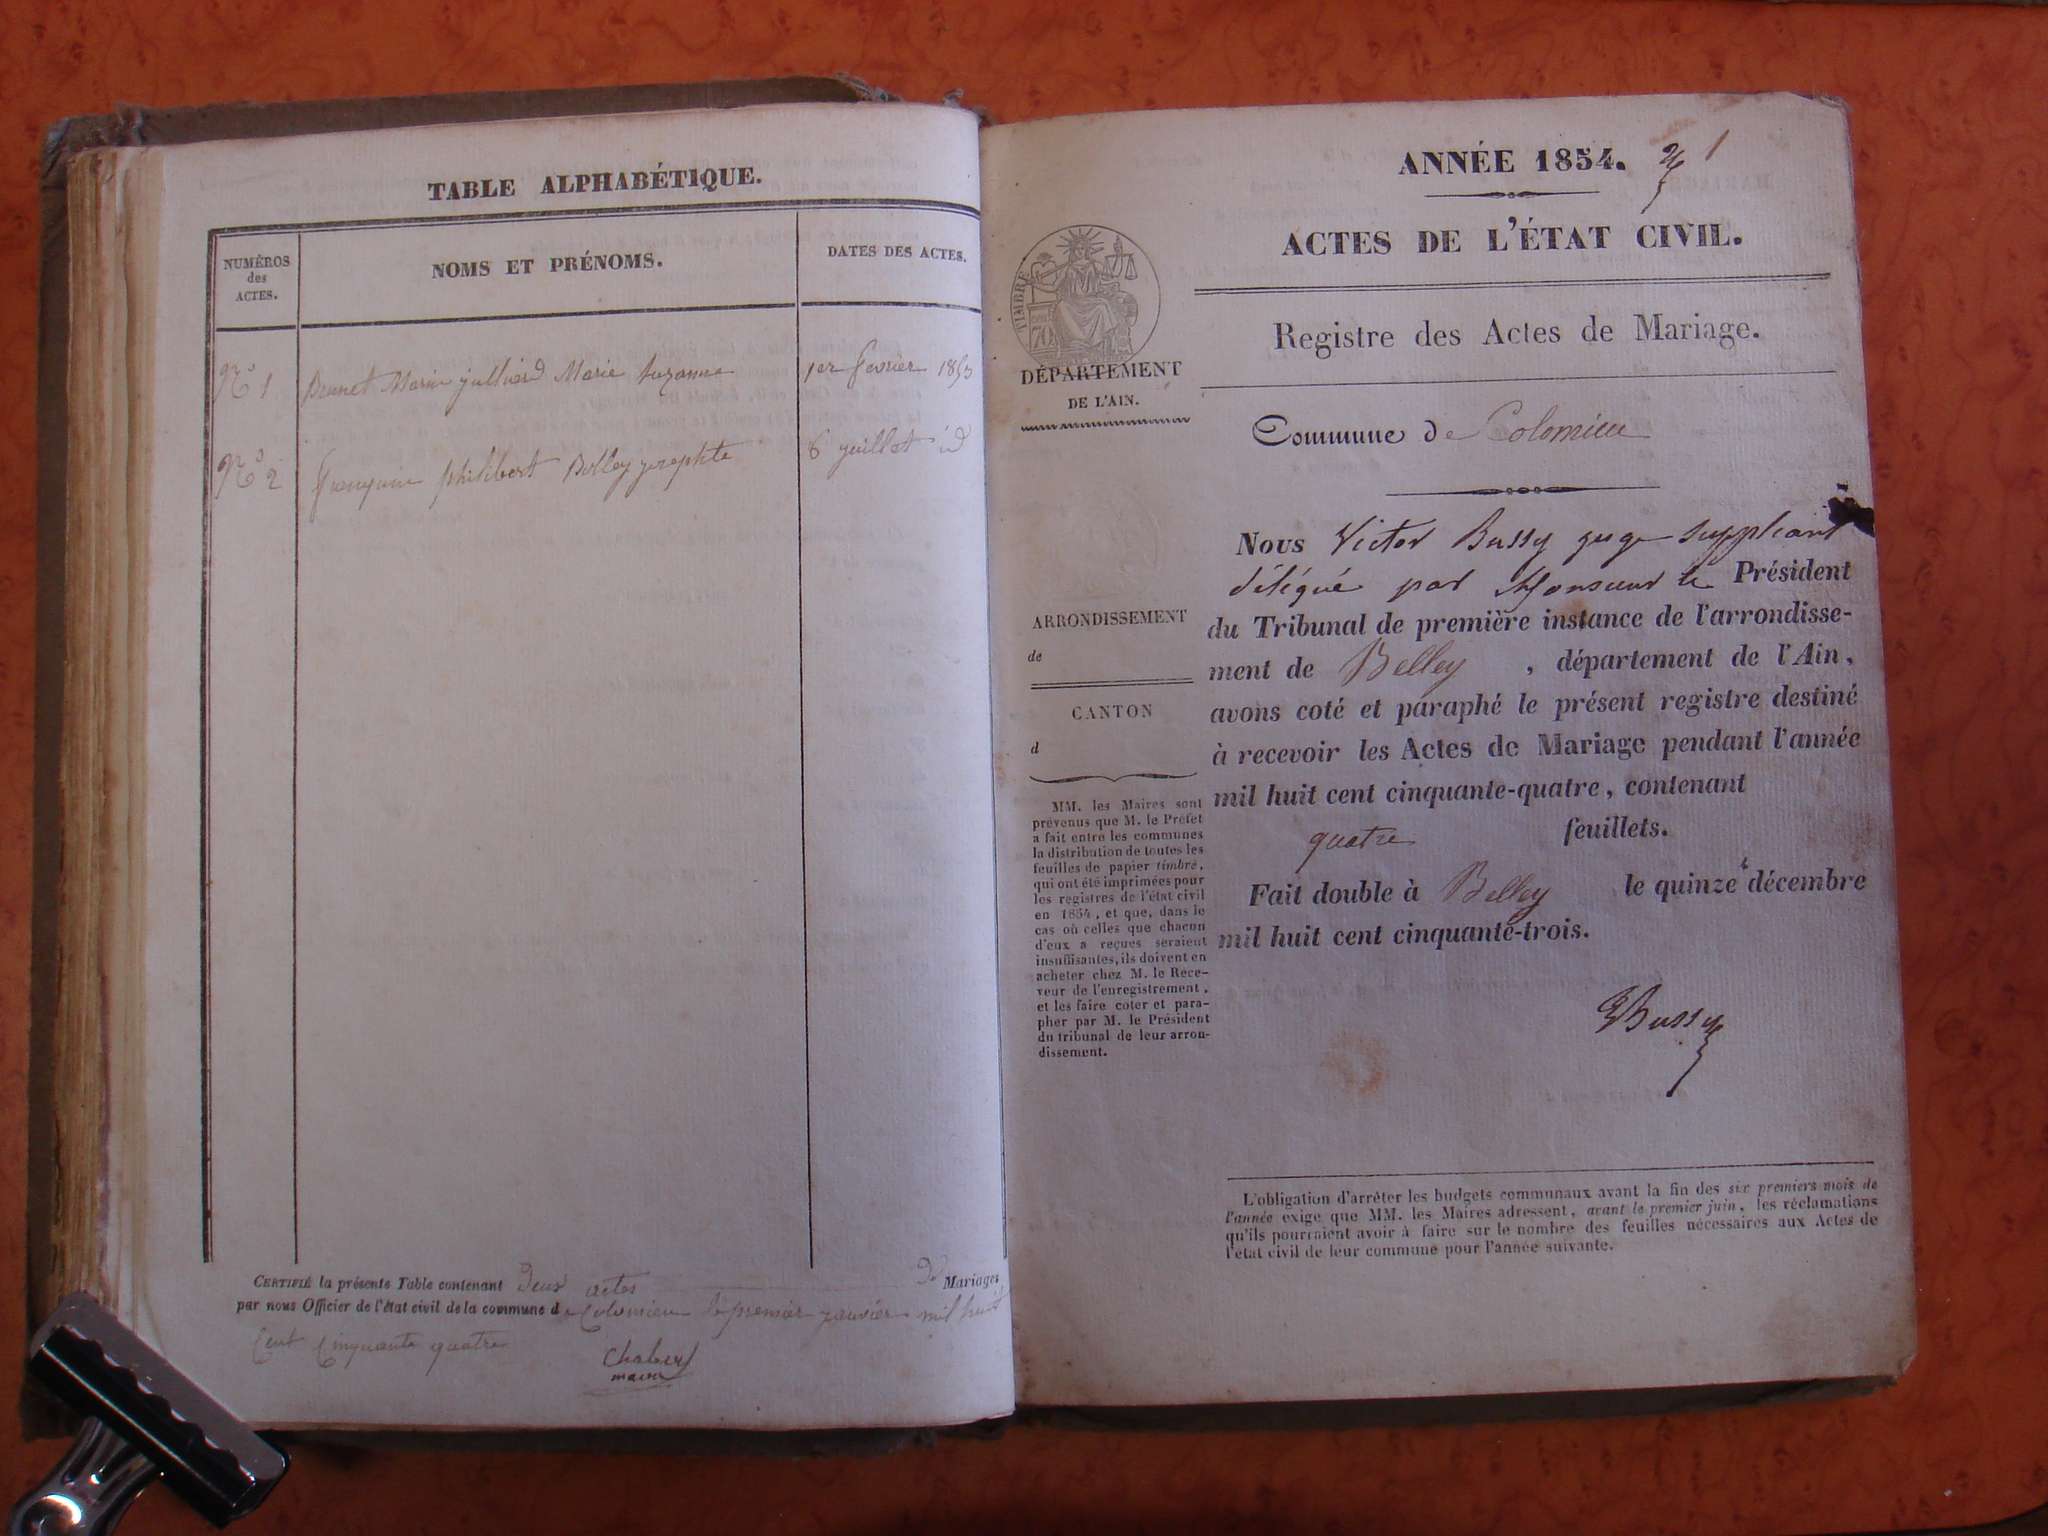 TABLE ALPHABÉTIQUE.
NUMÉROS
des
ACTES.
NOMS ET PRÉNOMS.
DATES DES ACTES.
N° 1 Brunet Marin julliard Marie Suzanne 1er fevrier 1853
N° 2 philibert Bolley josephte 6 juillet id
CERTIFIÉ la présente Table contenant Deux actes De Mariages
par nous Officier de l'état civil de la commune de Colomieu le premier janvier mil huit
Cent Cinquante quatre
Chabert
maire
ANNÉE 1854. 1
ACTES DE L'ÉTAT CIVIL.
Registre des Actes de Mariage.
TIMBRE
70
DÉPARTEMENT
DE L'AIN.
Commune de Colomieu
Nous Victor Bussy juge suppléant
délégué par Monsieur le Président
du Tribunal de première instance de l'arrondisse-
ment de Belley , département de l'Ain,
avons coté et paraphé le présent registre destiné
à recevoir les Actes de Mariage pendant l'année
mil huit cent cinquante-quatre, contenant
quatre feuillets.
Fait double à Belley le quinze décembre
mil huit cent cinquante-trois.
Bussy
ARRONDISSEMENT
de
CANTON
d
MM. les Maires sont
prévenus que M. le Préfet
a fait entre les communes
la distribution de toutes les
feuilles de papier timbré,
qui ont été imprimées pour
les registres de l'état civil
en 1854, et que, dans le
cas où celles que chacun
d'eux a reçues seraient
insuffisantes, ils doivent en
acheter chez M. le Rece-
veur de l'enregistrement,
et les faire coter et para-
pher par M. le Président
du tribunal de leur arron-
dissement.
L'obligation d'arrêter les budgets communaux avant la fin des six premiers mois de
l'année exige que MM. les Maires adressent, avant le premier juin, les réclamations
qu'ils pourraient avoir à faire sur le nombre des feuilles nécessaires aux Actes de
l'état civil de leur commune pour l'année suivante.